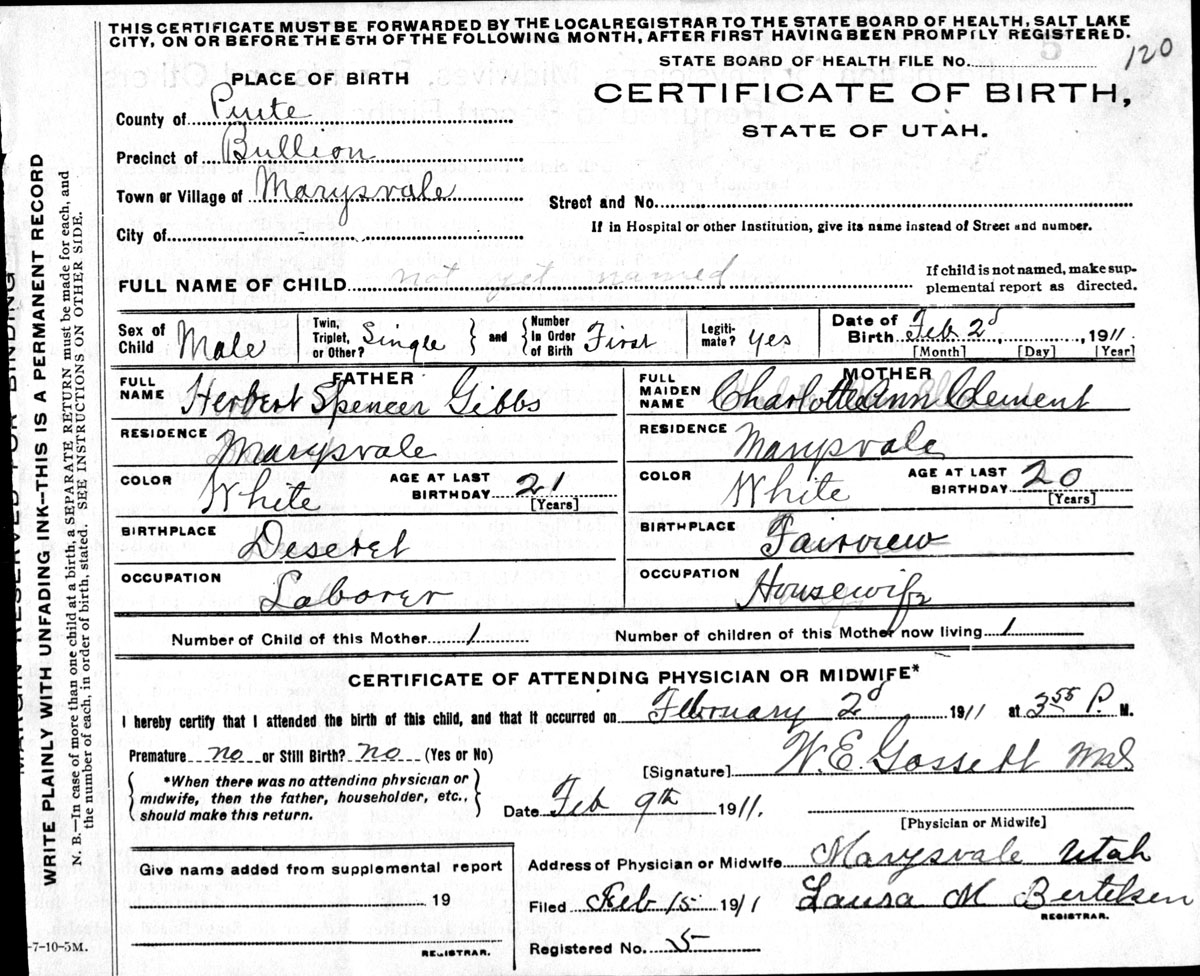 THIS CERTIFICATE MUST BE FORWARDED BY THE LOCAL REGISTRAR TO THE STATE BOARD OF HEALTH, SALT LAKE
CITY, ON OR BEFORE THE 5TH OF THE FOLLOWING MONTH, AFTER FIRST HAVING BEEN PROMPTLY REGISTERED.
120
STATE BOARD OF HEALTH FILE No.
PLACE OF BIRTH
CERTIFICATE OF BIRTH,
STATE OF UTAH.
County of Piute
Precinct of Bullion
Town or Village of Marysvale
Street and No.
City of -
If in Hospital or other Institution, give its name instead of Street and number.
FULL NAME OF CHILD not yet named
If child is not named, make sup-
plemental report as directed.
Sex of Child Male
Twin, Triplet, or Other? Single and Number In Order of Birth First
Legiti-mate? yes
Date of Birth Feb 2d, 1911.
[Month] [Day] [Year]
FATHER
FULL NAME Herbert Spencer Gibbs
RESIDENCE Marysvale
COLOR White AGE AT LAST BIRTHDAY 21
[Years]
BIRTHPLACE Deseret
OCCUPATION Laborer
MOTHER
FULL MAIDEN NAME Charlotte Ann Clement
RESIDENCE Marysvale
COLOR White AGE AT LAST BIRTHDAY 20
[Years]
BIRTHPLACE Fairview
OCCUPATION Housewife
Number of Child of this Mother 1 Number of children of this Mother now living 1
CERTIFICATE OF ATTENDING PHYSICIAN OR MIDWIFE*
I hereby certify that I attended the birth of this child, and that it occurred on February 2d 1911 at 3 55 P. M.
Premature no or Still Birth? no (Yes or No)
[Signature] W. E. Gossett
*When there was no attending physician or
midwife, then the father, householder, etc.,
should make this return.
Date Feb 9th 1911.
[Physician or Midwife]
Address of Physician or Midwife Marysvale Utah
Give name added from supplemental report
19
REGISTRAR.
Filed Feb 15 1911 Laura M Bertelsen
REGISTRAR.
Registered No. 5
-7-10-5M.
MARGIN RESERVED FOR BINDING
WRITE PLAINLY WITH UNFADING INK--THIS IS A PERMANENT RECORD
N. B.—In case of more than one child at a birth, a SEPARATE RETURN must be made for each, and
the number of each, in order of birth, stated. SEE INSTRUCTIONS ON OTHER SIDE.